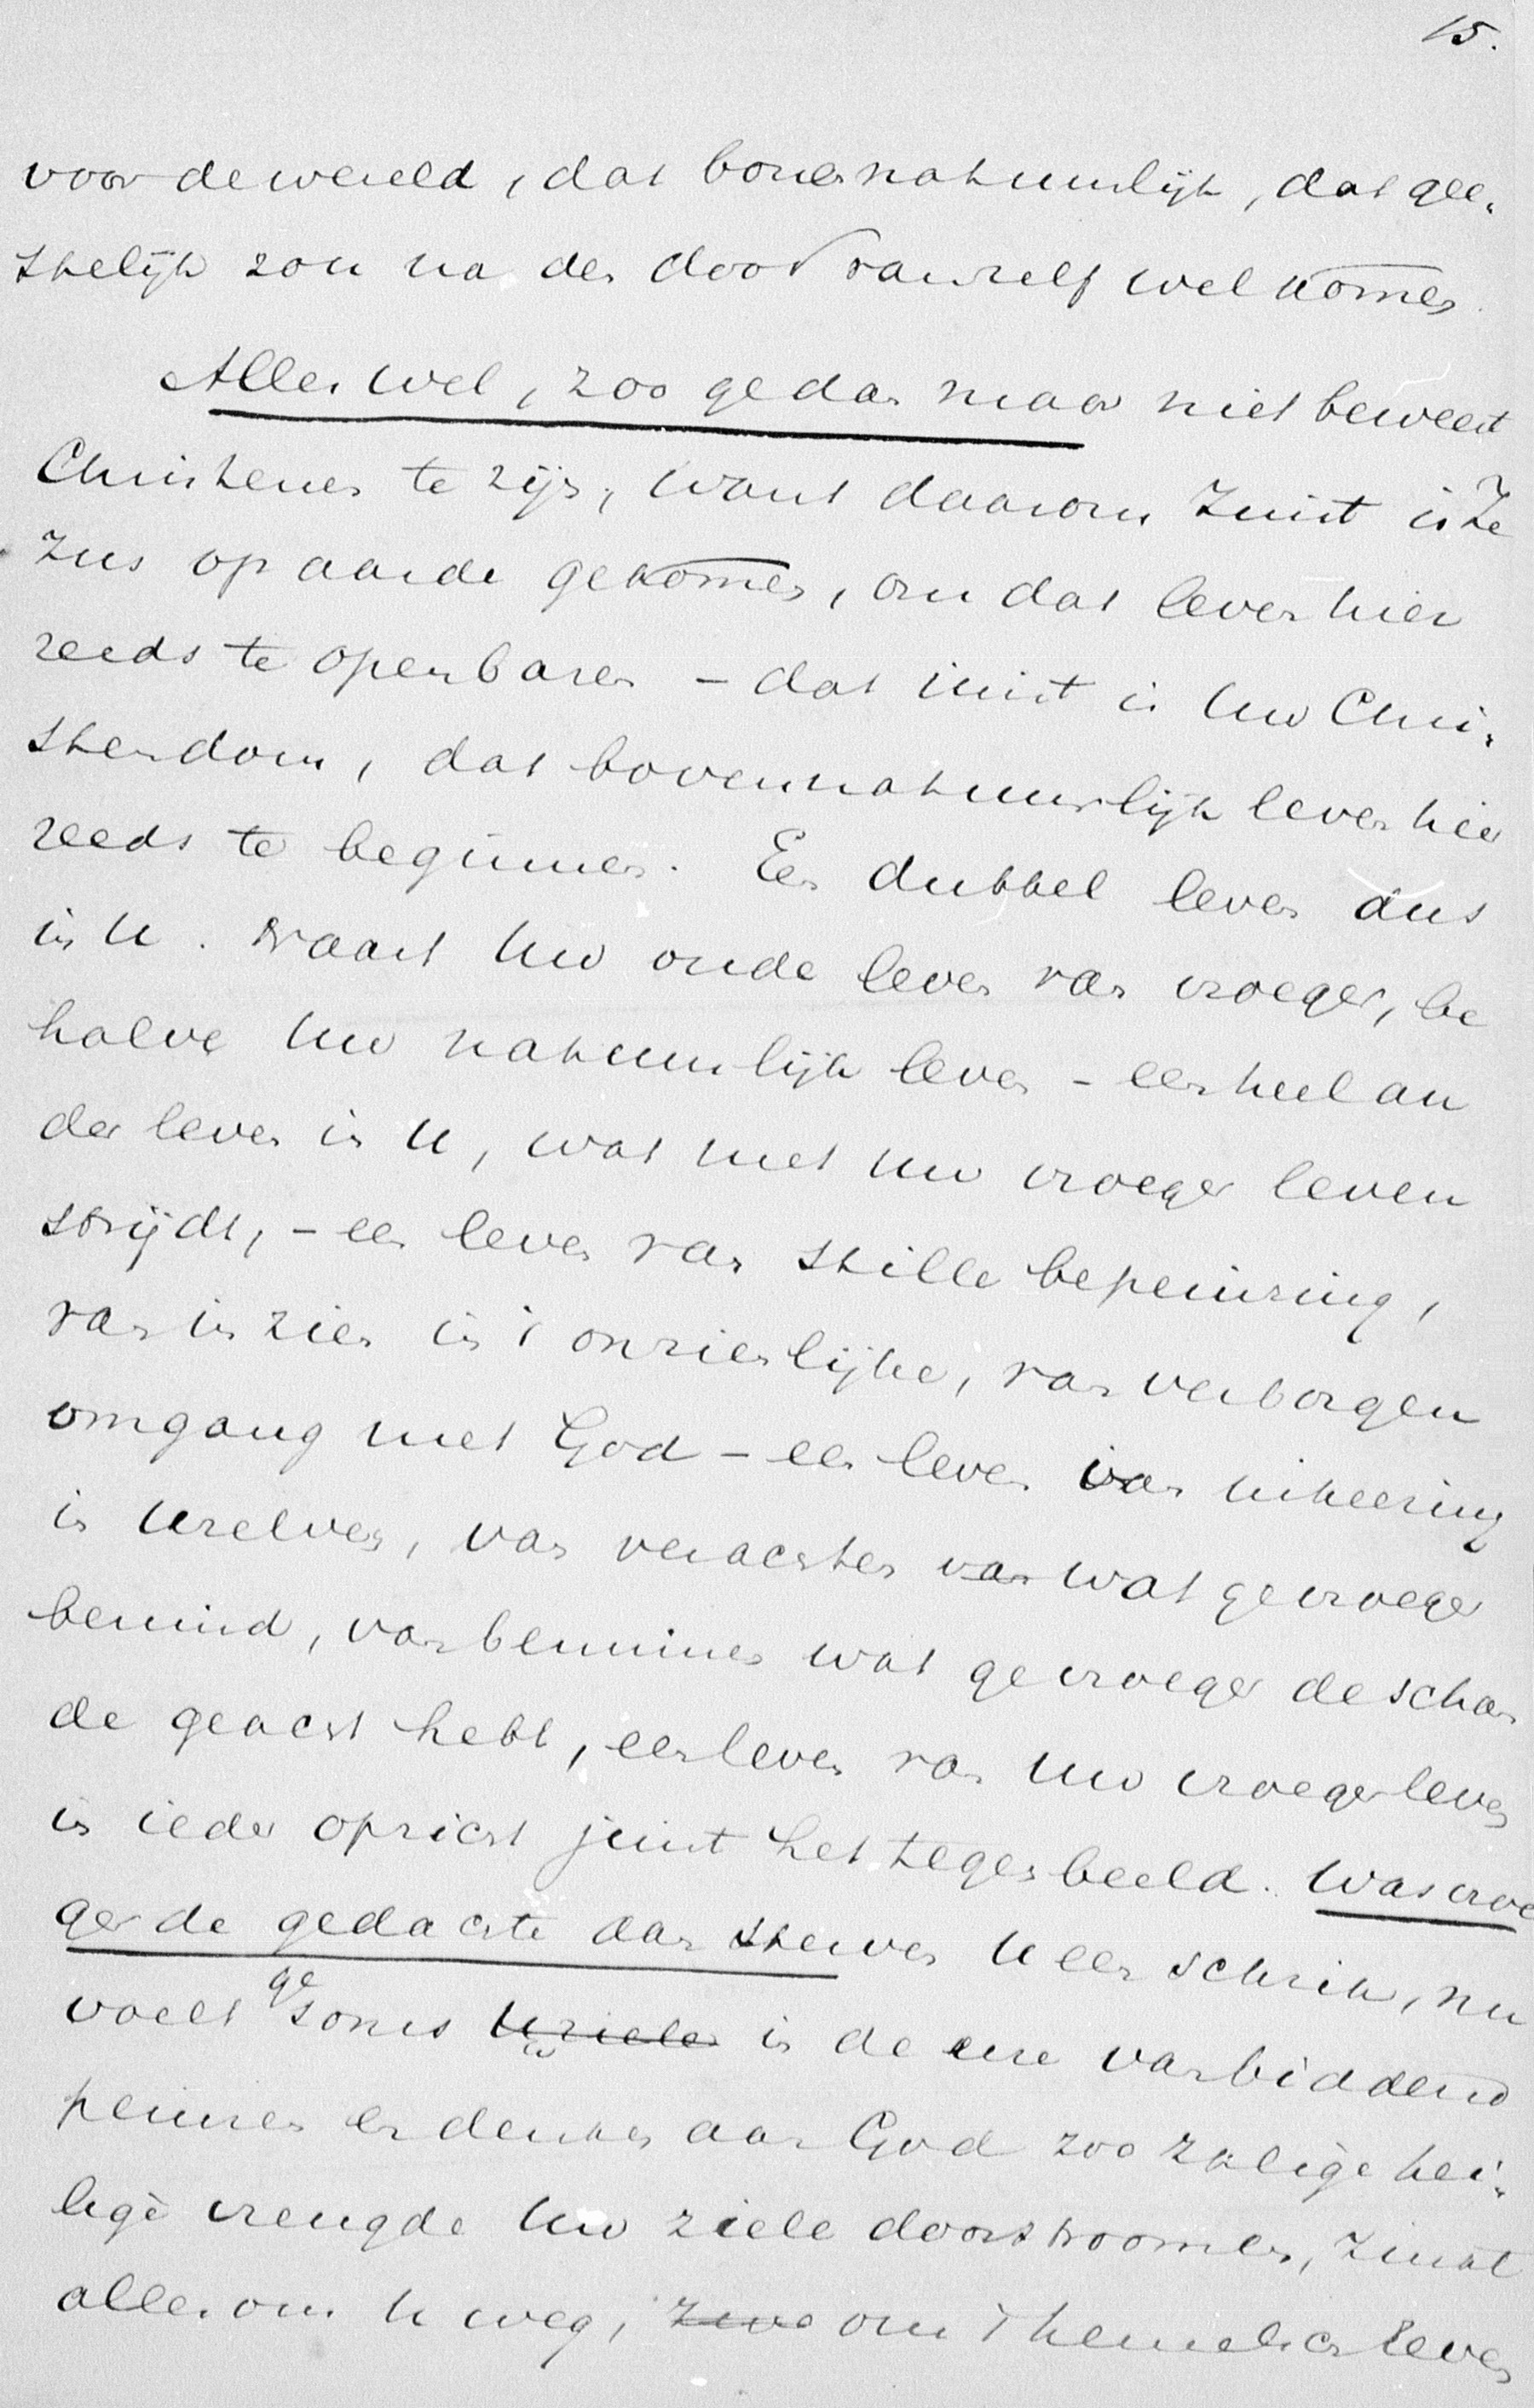 15.
voor de wereld, dat bovennatuurlijk, dat gee-
stelijk zou na den dood vanzelf wel komen.
Alles wel, zoo ge dan maar niet beweert
Christenen te zijn, want daarom Juist is Je
zus op aarde gekomen, om dat leven hier
reeds te openbaren - dat juist is Uw Chri-
stendom, dat bovennatuurlijk leven hier
reeds te beginnen. Een dubbel leven dus
in U. Naast Uw oude leven van vroeger, be
halve Uw natuurlijk leven - een heel an
der leven in U, wat met uw vroeger leven
strijdt, - een leven van stille bepeinzing,
van in zien in 't onzienlijke, van verborgen
omgang met God - een leven van inkeering
in Uzelven, van verachten van wat ge vroeger
bemind, van beminnen wat ge vroeger de schan
de geacht hebt, een leven van Uw vroeger leven
in ieder opzicht juist het tegenbeeld. Was vroe
ger de gedachte aan sterven U een schrik, nu
voelt ge soms Uw ziele in de ure van biddend
peinzen en denken aan God zoo zalige hei-
lige vreugde Uw ziele doorstroomen, zinkt
alles om U weg, zwe om 't hemelsch leven